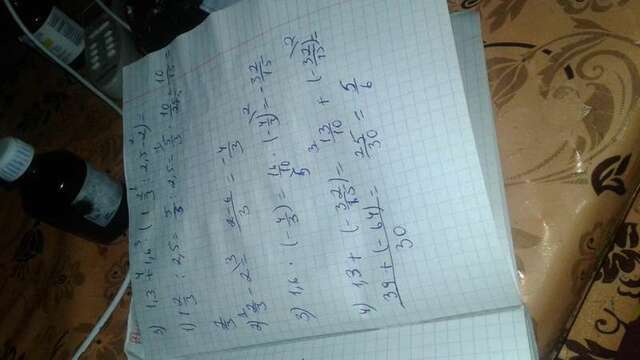 4 3 1 2
3) 1,3 + 1,6 · (1 2/3 : 2,5 - 2) =
1) 1 2/3 : 2,5 = 5/3 : 2,5 = 5/3 · 10/25 = 10/15 =
2/3
2) 2/3 - 2 = 2-6/3 = -4/3
3) 1,6 · (-4/3) = 16/10 · (-4/3) = -32/15
4) 1,3 + (-32/15) = 13/10 + (-32/15) =
39 + (-64)/30 = 25/30 = 5/6